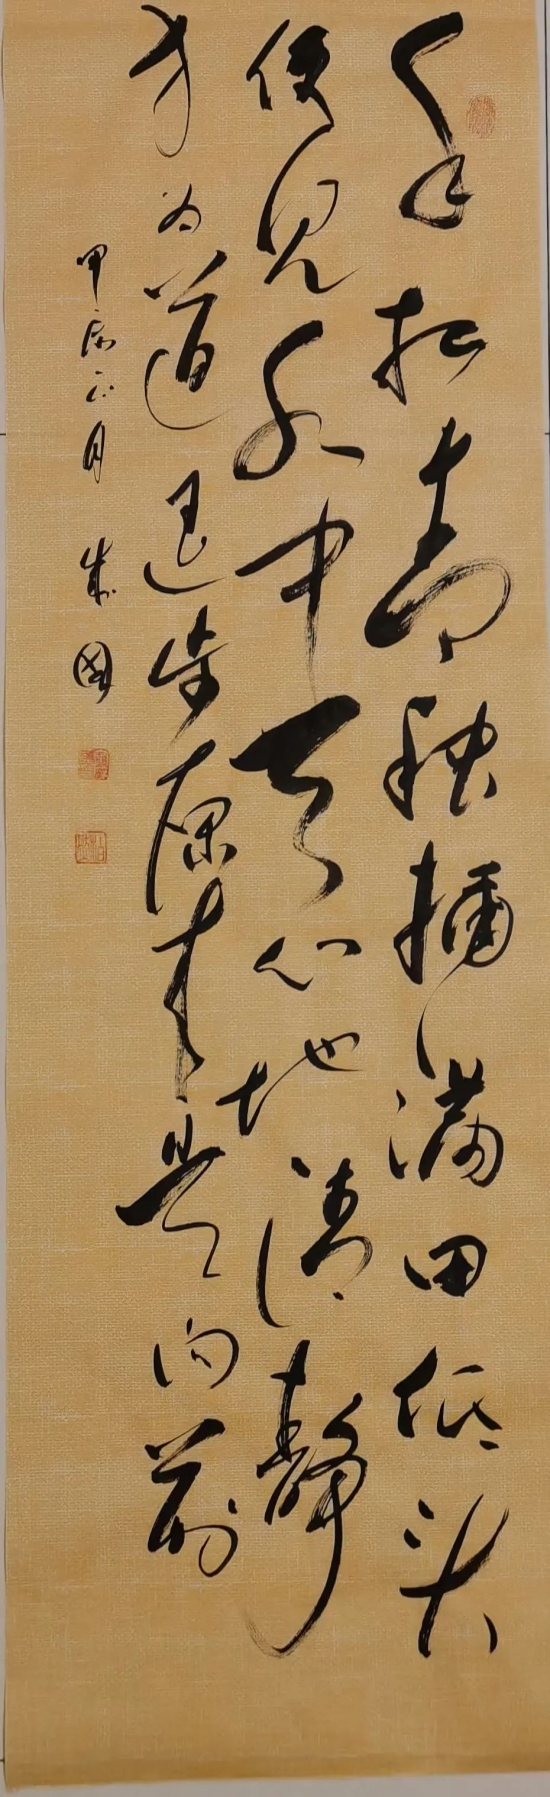 手把青秧插满田低头
便见水中天心地清静
方为道退步原来是向前
甲辰六月 成国